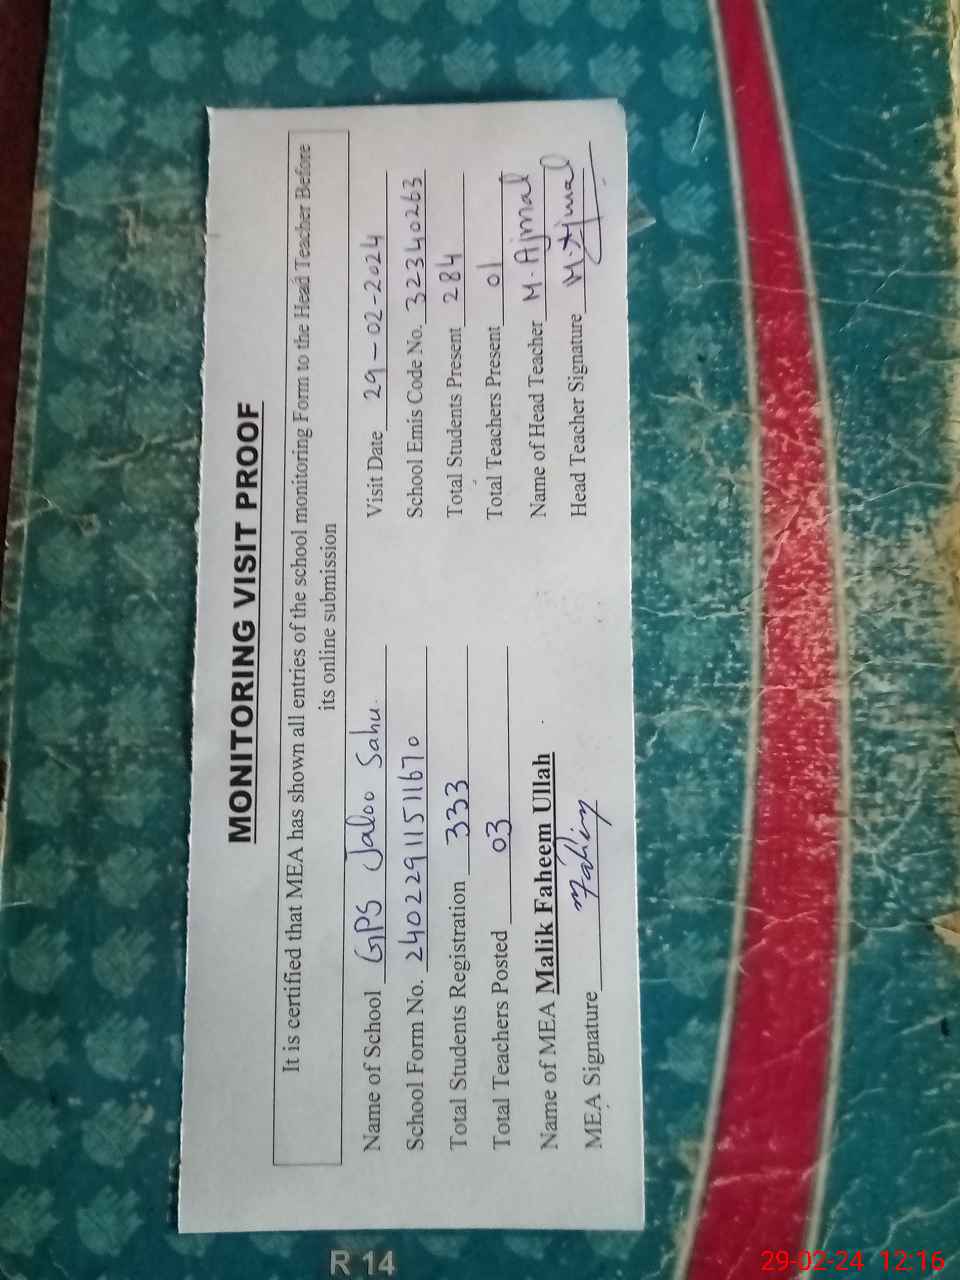 MONITORING VISIT PROOF
It is certified that MEA has shown all entries of the school monitoring Form to the Head Teacher Before
its online submission
Name of School GPS Jaloo Sahu. Visit Date 29-02-2024
School Form No. 24022911511670 School Emis Code No. 32340263
Total Students Registration 333 Total Students Present 284
Total Teachers Posted 03 Total Teachers Present 01
Name of MEA Malik Faheem Ullah Name of Head Teacher M. Ajmal
MEA Signature Head Teacher Signature M. Ajmal
R 14
29-02-24 12:16